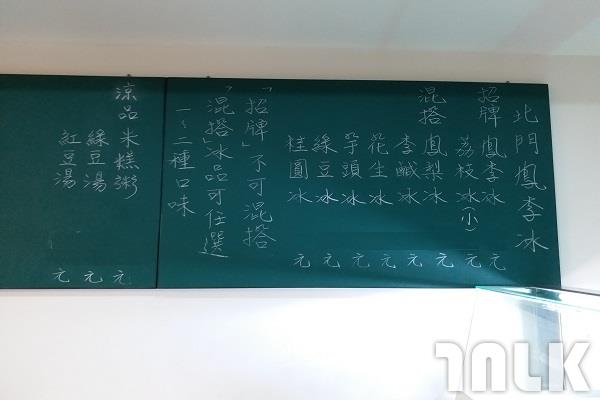 北門鳳李冰
招牌 鳳李冰 元
荔枝冰(小) 元
混搭 鳳梨冰 元
李鹹冰 元
花生冰 元
芋頭冰 元
綠豆冰 元
桂圓冰 元
「招牌」不可混搭
「混搭」冰品可任選
一~二種口味
涼品 米糕粥 元
綠豆湯 元
紅豆湯 元
1NLK